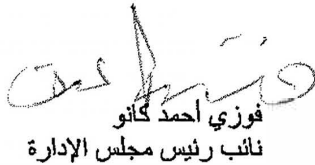 فوزي احمد كانو
نائب رئيس مجلس الإدارة